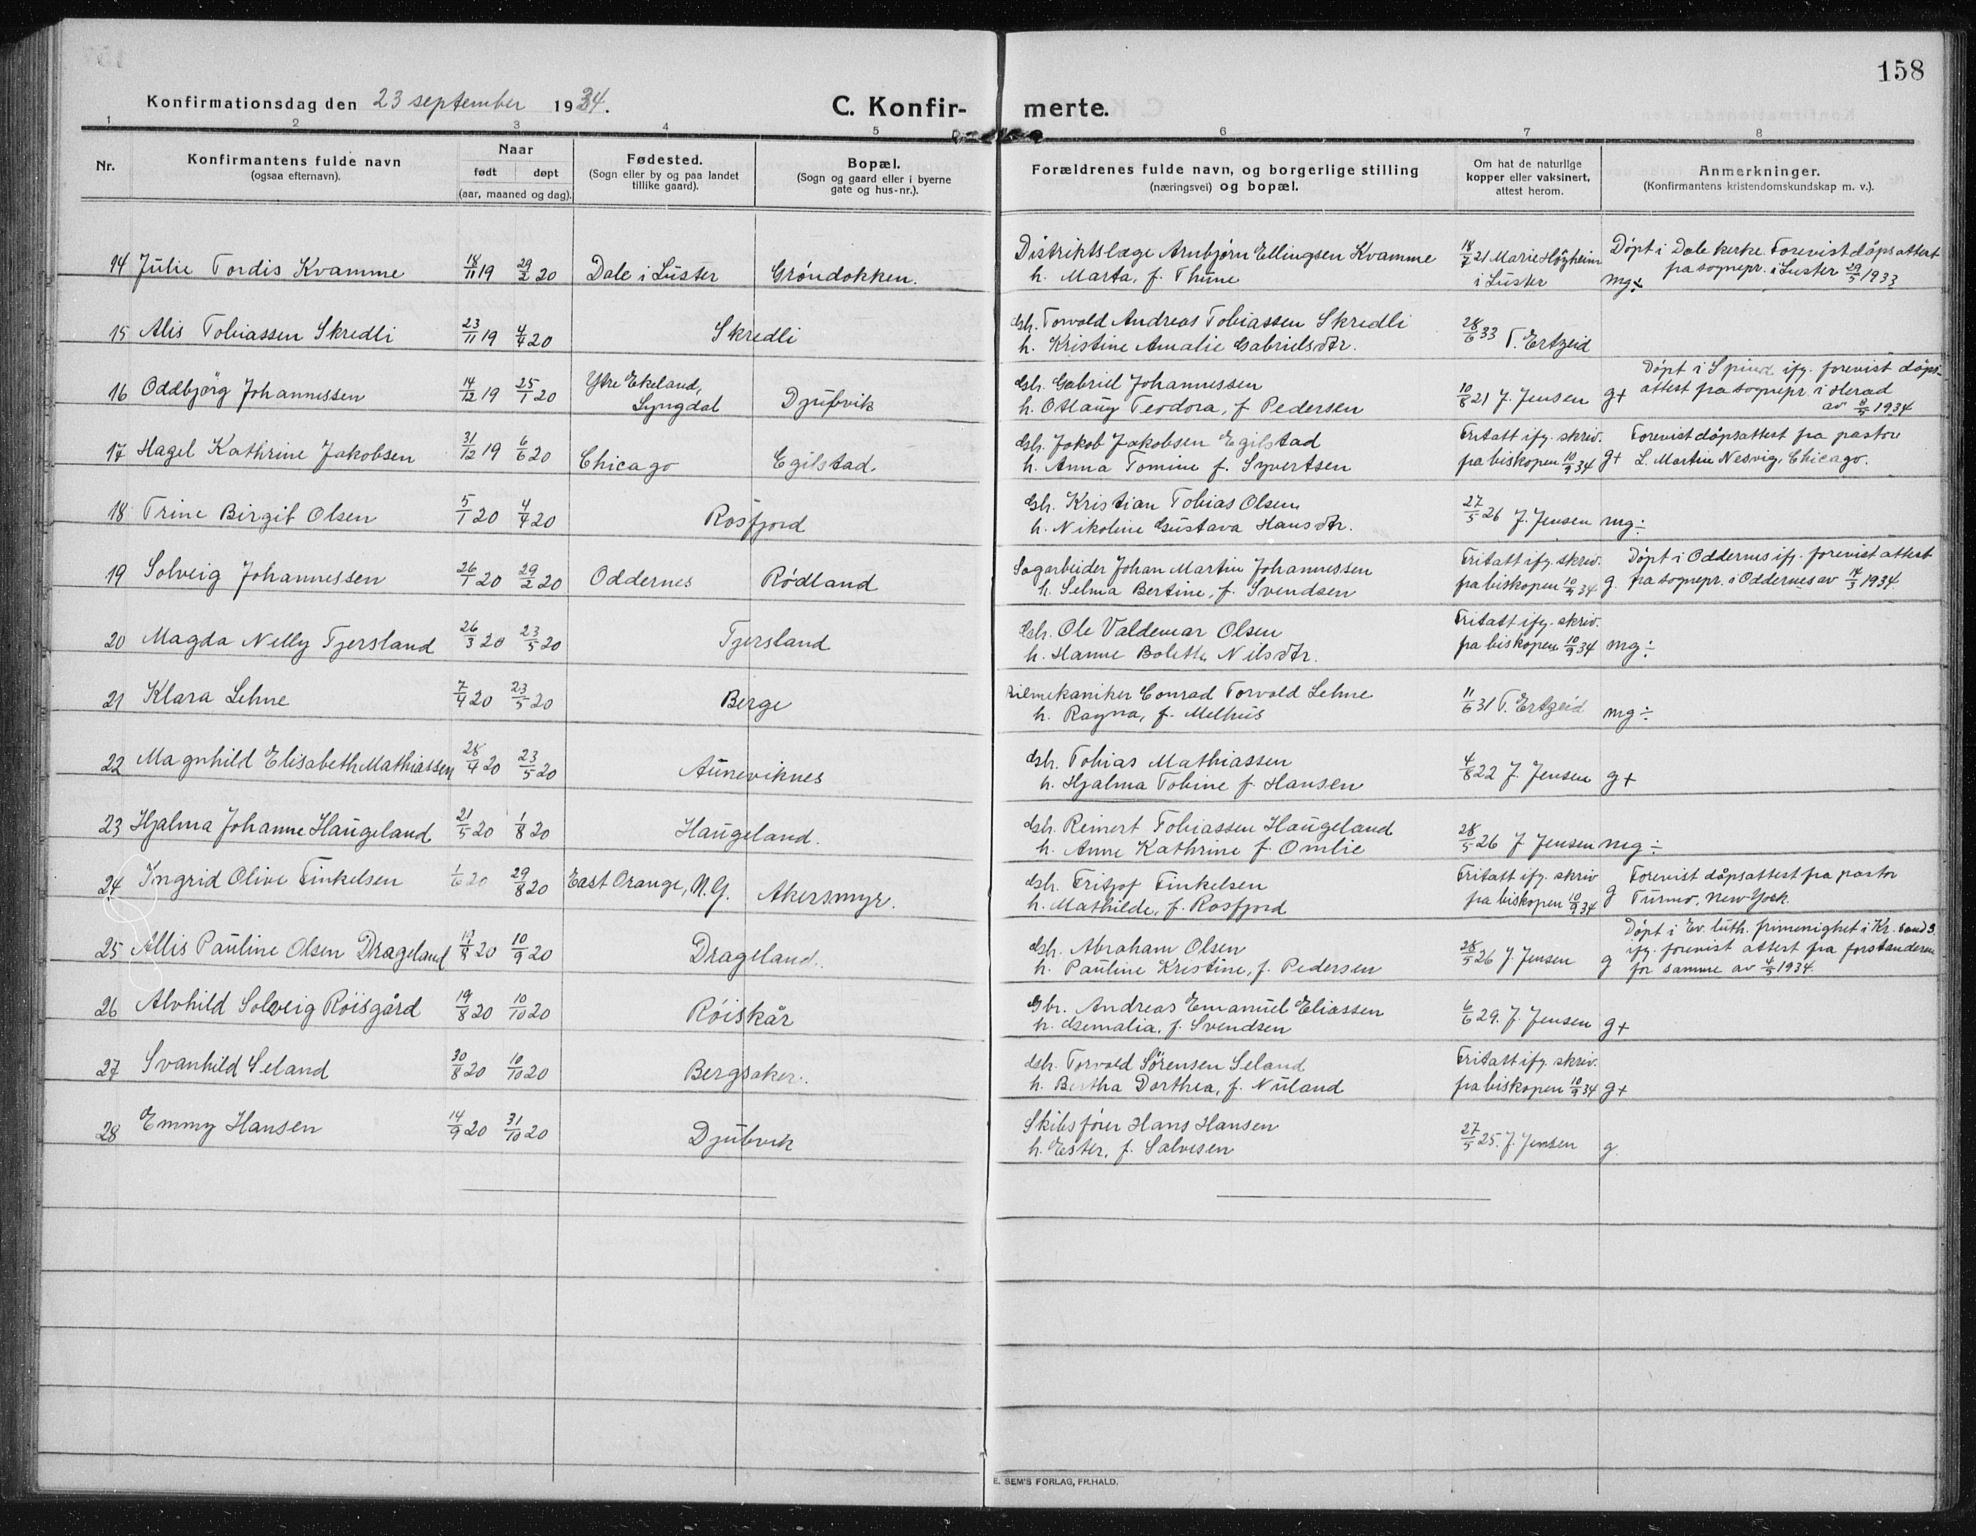 158
Konfirmationsdag den 23 september 1934.
C. Konfirmerte.
1 2 3 4 5 6 7 8
Nr.
Konfirmantens fulde navn
(ogsaa efternavn).
Naar
født døpt
(aar, maaned og dag).
Fødested.
(Sogn eller by og paa landet
tillike gaard).
Bopæl.
(Sogn og gaard eller i byerne
gate og hus-nr.).
Forældrenes fulde navn, og borgerlige stilling
(næringsvei) og bopæl.
Om hat de naturlige
kopper eller vaksinert,
attest herom.
Anmerkninger.
(Konfirmantens kristendomskundskap m. v.).
14 Julie Tordis Kvamme 18/11 19 29/2 20 Dale i Luster Grøndokken.
Distriktslæge Arnbjørn Ellingsen Kvamme
h. Marta, f. Thune
18/7 21 Marie Høgheim
i Luster
mg÷
Døpt i Dale kirke. Forevist dåpsattest
fra sognepr. i Luster 29/5 1933
15 Alis Tobiassen Skredli 23/11 19 4/4 20 Skredli
Gbr. Torvald Andreas Tobiassen Skredli
h. Kristine Amalie Gabrielsdtr.
28/6 33 T. Ertzeid
16 Oddbjørg Johannessen 14/12 19 25/1 20 Ytre Ekeland,
Lyngdal
Djubvik
Gbr. Gabriel Johannessen
h. Otlaug Teodora, f. Pedersen
10/8 21 J. Jensen g+
Døpt i Spind ifg. forevist dåps-
attest fra sognepr. i Herad
av 8/9 1934
17 Hagel Kathrine Jakobsen 31/12 19 6/6 20 Chicago Egilstad.
Gbr. Jakob Jakobsen Egilstad
h. Anna Tomine f. Syvertsen
Fritatt ifg. skriv.
fra biskopen 10/9 34 g+
Forevist dåpsattest fra pastor
L. Martin Nesvig, Chicago.
18 Trine Birgit Olsen 5/1 20 4/4 20 Rosfjord
Gbr. Kristian Tobias Olsen
h. Nikoline Gustava Hansdtr.
27/5 26 J. Jensen mg÷
19 Solveig Johannessen 26/1 20 29/2 20 Oddernes Rødland
Sagarbeider Johan Martin Johannessen
h. Selma Bertine, f. Svendsen
Fritatt ifg. skriv.
fra biskopen 10/9 34 g.
Døpt i Oddernes ifg. forevist attest
fra sognepr. i Oddernes av 14/3 1934.
20 Magda Nelly Tjersland 26/3 20 23/5 20 Tjersland
Gbr. Ole Valdemar Olsen
h. Hanne Bolette Nilsdtr.
Fritatt ifg. skriv.
fra biskopen 10/9 34 mg÷
21 Klara Lehne 7/4 20 23/5 20 Berge
Bilmekaniker Conrad Torvald Lehne
h. Ragna, f. Melhus
11/6 31 T. Ertzeid mg÷
22 Magnhild Elisabeth Mathiassen 28/4 20 23/5 20 Auneviknes
Gbr. Tobias Mathiassen
h. Hjalma Tobine f. Hansen
4/8 22 J. Jensen g+
23 Hjalma Johanne Haugeland 21/5 20 1/8 20 Haugeland.
Gbr. Reinert Tobiassen Haugeland
h. Anne Kathrine f. Omlie
28/5 26 J. Jensen mg÷
24 Ingrid Olive Finkelsen 1/6 20 29/8 20 East Orange, N.G. Akersmyr.
Gbr. Fritjof Finkelsen
h. Mathilde, f. Rosfjord
Fritatt ifg. skriv
fra biskopen 10/9 34 g
Forevist dåpsattest fra pastor
Turmo, New York.
25 Allis Pauline Olsen Drageland 13/8 20 10/9 20 Drageland.
Gbr. Abraham Olsen
h. Pauline Kristine, f. Pedersen
28/5 26 J. Jensen g
Døpt i Ev. luth. frimenighet i Kr.sand S
ifg. forevist attest fra forstanderen
for samme av 4/9 1934.
26 Alvhild Solveig Röisgård 19/8 20 10/10 20 Röiskår
Gbr. Andreas Emanuel Eliassen
h. Gemalia, f. Svendsen
6/6 29. J. Jensen g+
27 Svanhild Seland 30/8 20 10/10 20 Bergsaker.
Gbr. Torvald Sørensen Seland
h. Bertha Dorthea, f. Nuland
Fritatt ifg. skriv.
fra biskopen 10/9 34 g+
28 Emmy Hansen 14/9 20 31/10 20 Djubvik
Skibsfører Hans Hansen
h. Ester, f. Salvesen
27/5 25. J. Jensen g.
E. SEM'S FORLAG, FR.HALD.